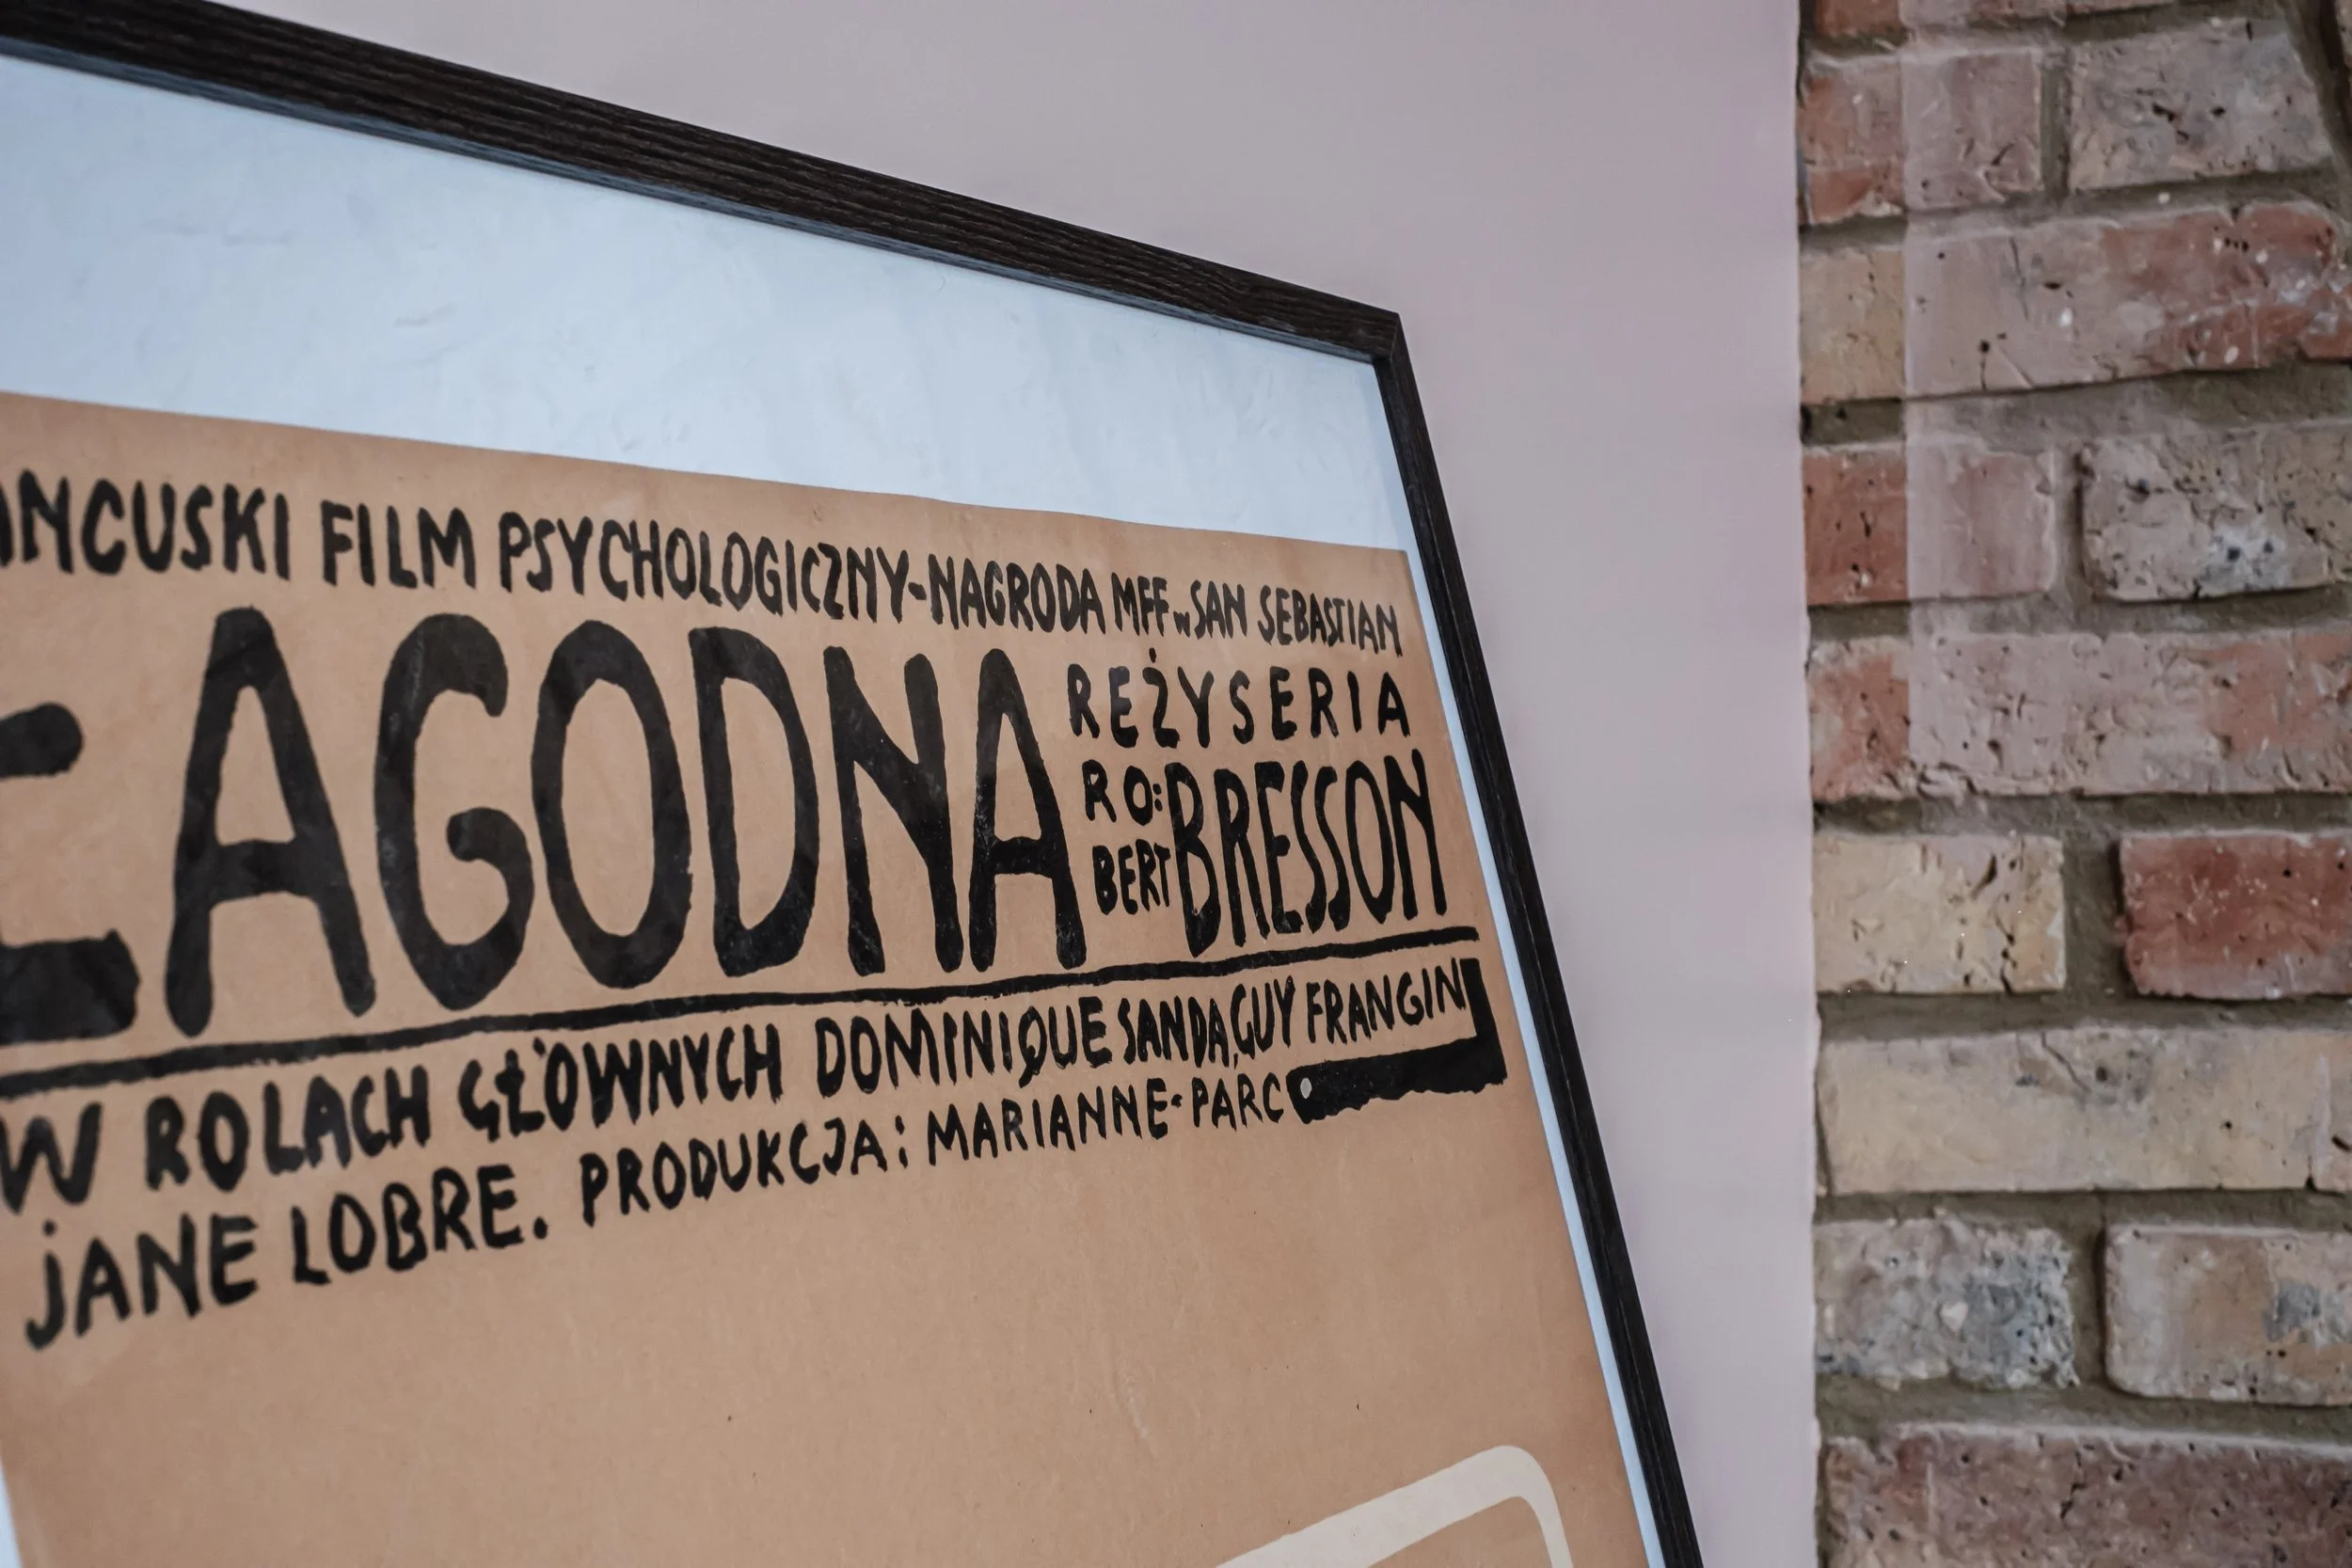 ANCUSKI FILM PSYCHOLOGICZNY-NAGRODA MFF w SAN SEBASTIAN
ŁAGODNA
REŻYSERIA
RO:
BERT BRESSON
W ROLACH GŁÓWNYCH DOMINIQUE SANDA, GUY FRANGIN
JANE LOBRE. PRODUKCJA: MARIANNE-PARC